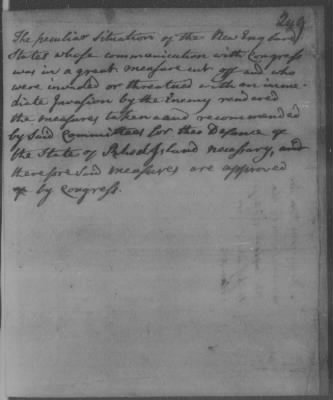 249
The peculiar Situation of the New England
States whose communication with Congress
was in a great measure cut off and who
were invaded or threatned with an imme-
diate Invasion by the Enemy rendered
the measures taken and recommended
by said Committees for the Defence of
the State of Rhode Island necessary, and
therefore said measures are approved
of by Congress.